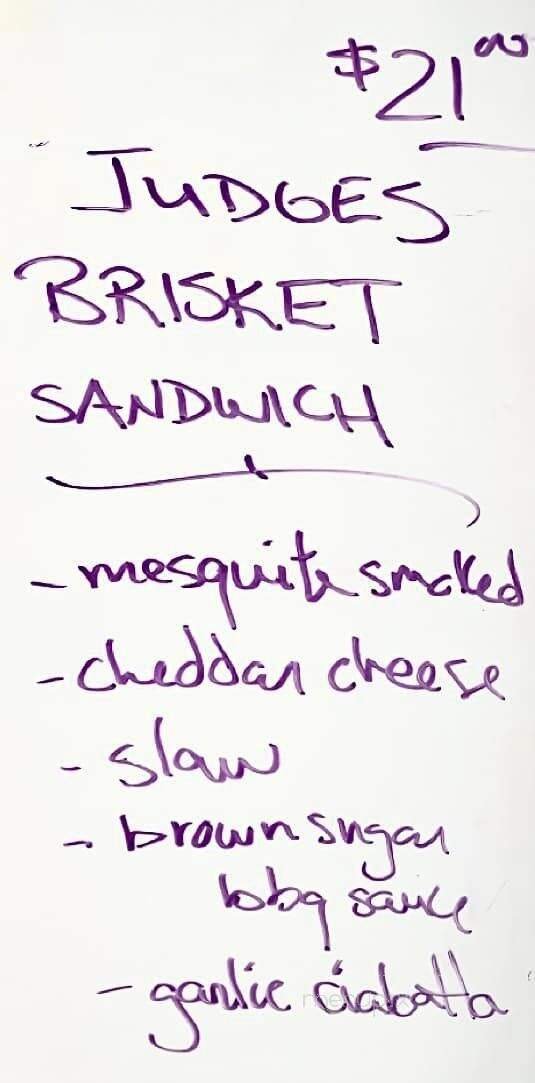 $21.00
JUDGES
BRISKET
SANDWICH
- mesquite smoked
- cheddar cheese
- slaw
- brown sugar
bbq sauce
- garlic ciabatta